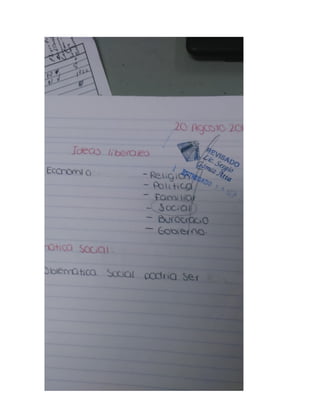 20 Agosto 20
Ideas liberales
REVISADO
Economia - Religión
- Politica
- Familiar
- Social
- Burocracio
- Gobierno
ática Social
oblematica Social podria ser